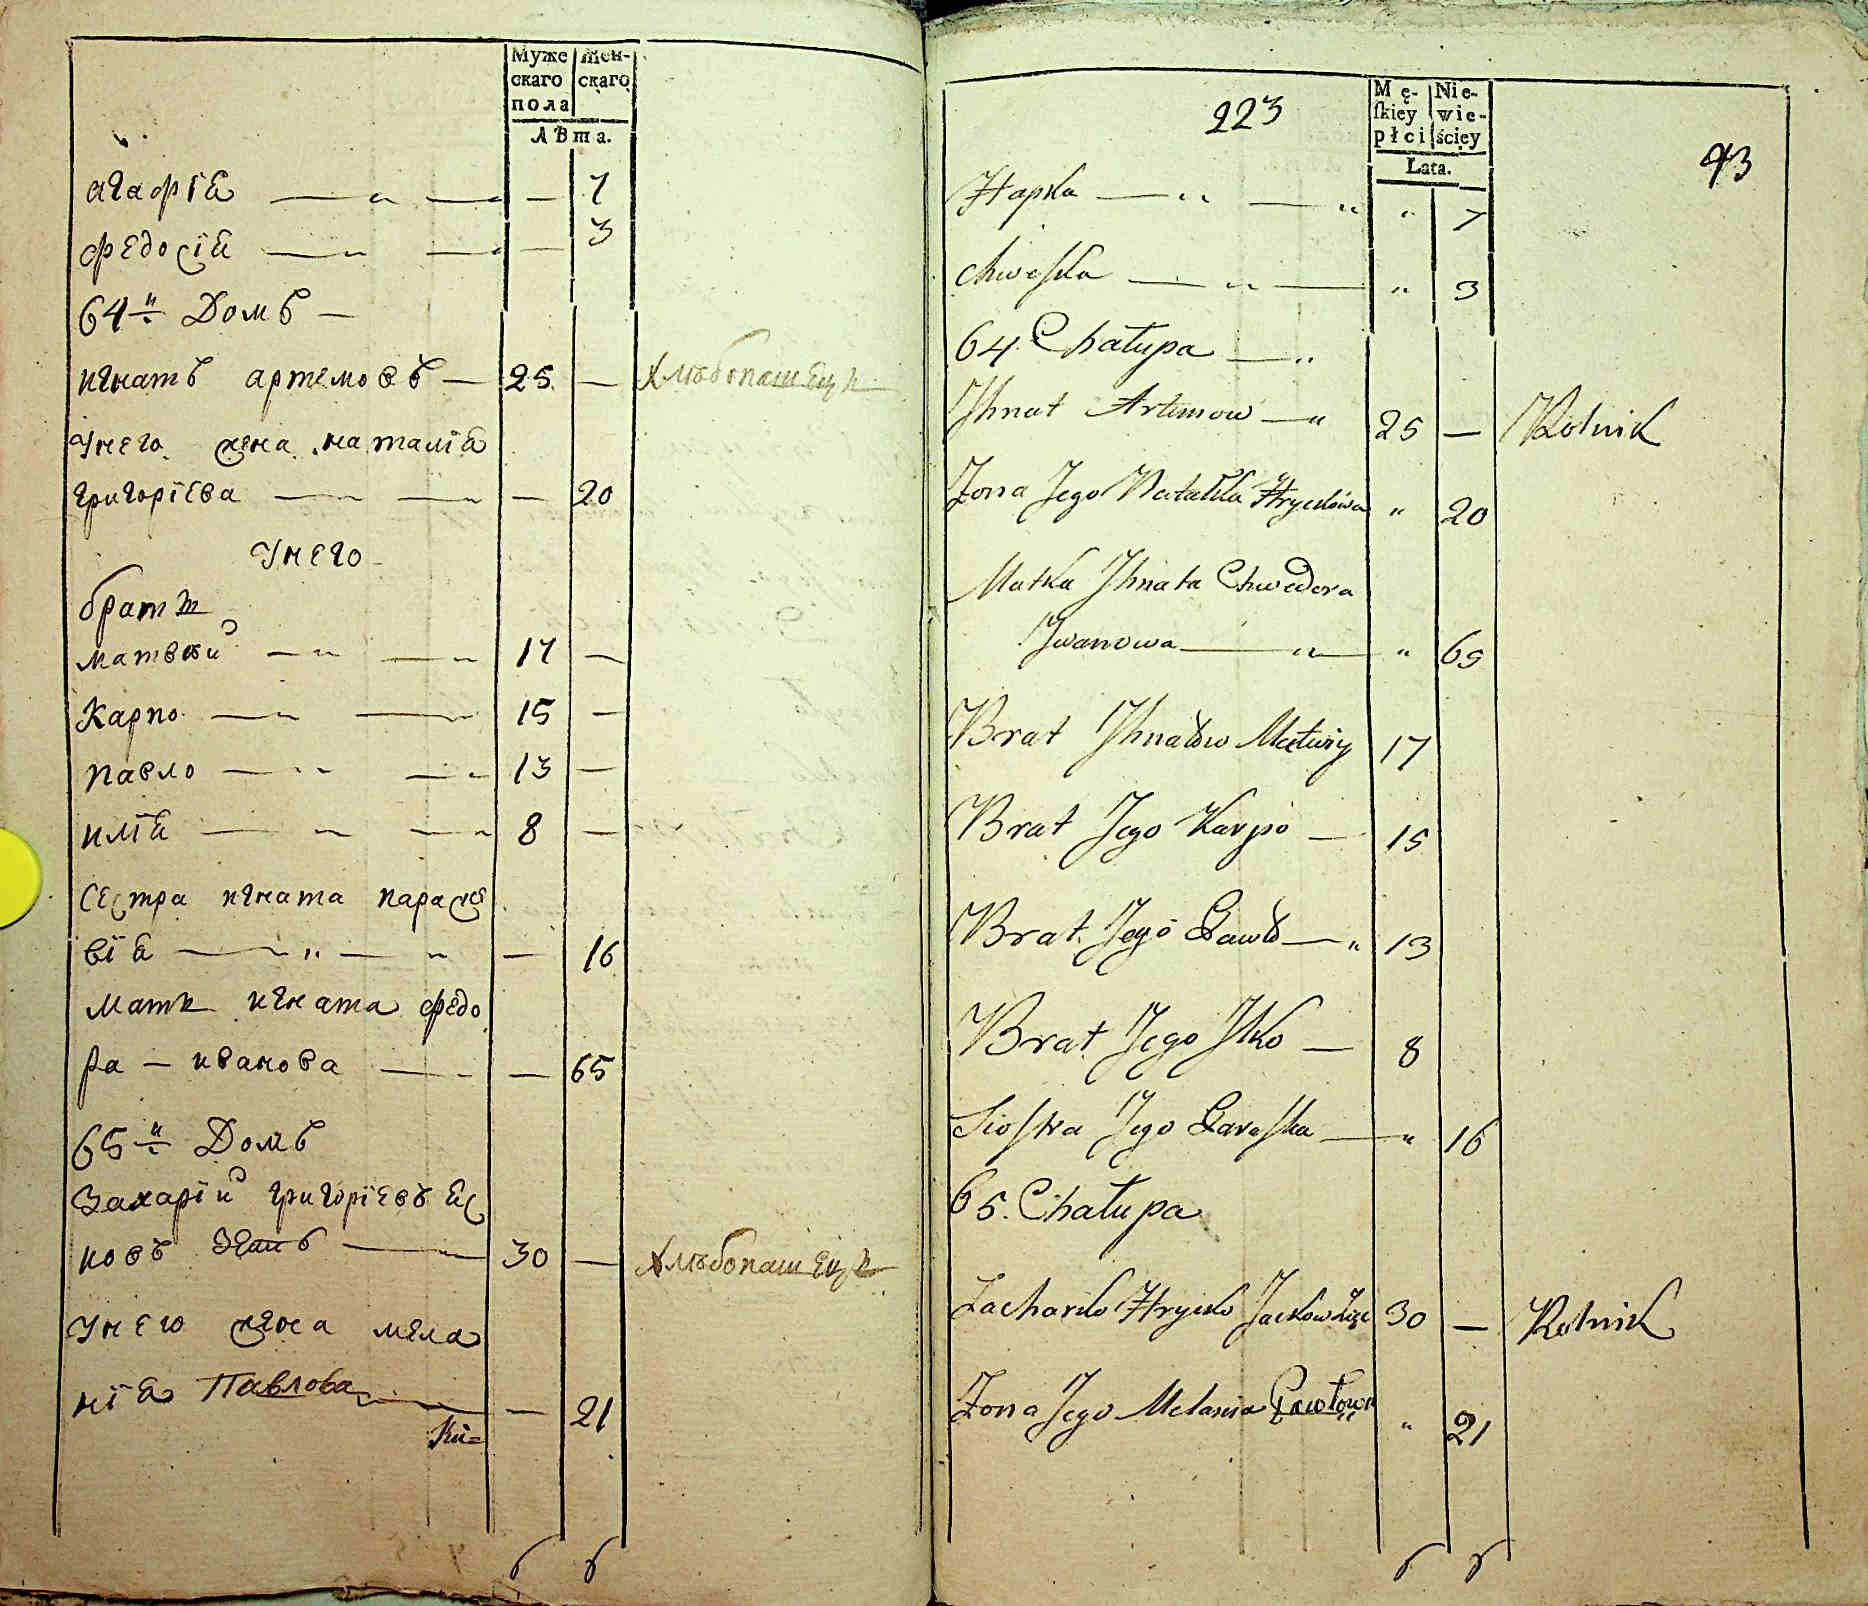 Муже
скаго
пола
Жен-
скаго
Лѣта.
агафія 7
федосія 3
64й Домъ
игнатъ артемовъ 25 — хлѣбопашецъ
Унего жена наталія
григоріева — 20
Унего
братя
матвѣй 17 —
Карпо 15 —
павло 13 —
илія 8 —
Сестра игната параске
вія — 16
мати игната федо
ра иванова — 65
65й Домъ
Захарій григоріевъ яс
ковъ зять 30 — хлѣбопашецъ
Унего жена мела
нія Павлова — 21
б б
223
93
Mę-
ſkiey
płci
Nie-
wie-
ściey
Lata.
Hapka „ 7
Chweſka „ 3
64. Chałupa
Jhnat Artemow 25 — Rolnik
Zona Jego Natalka Hryckowa „ 20
Matka Jhnata Chwedora
Jwanowa „ 65
Brat Jhnatow Matwiy 17
Brat Jego Karpo 15
Brat Jego Pawlo 13
Brat Jego Jlko 8
Sioſtra Jego Paraſka 16
65. Chałupa
Zacharko Hrycko Jackow Zięc 30 — Rolnik
Zona Jego Melania Pawłow „ 21
б б